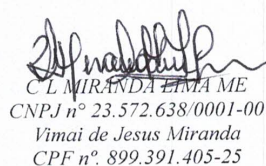 C L MIRANDA LIMA ME
CNPJ n° 23.572.638/0001-00
Vimai de Jesus Miranda
CPF nº. 899.391.405-25